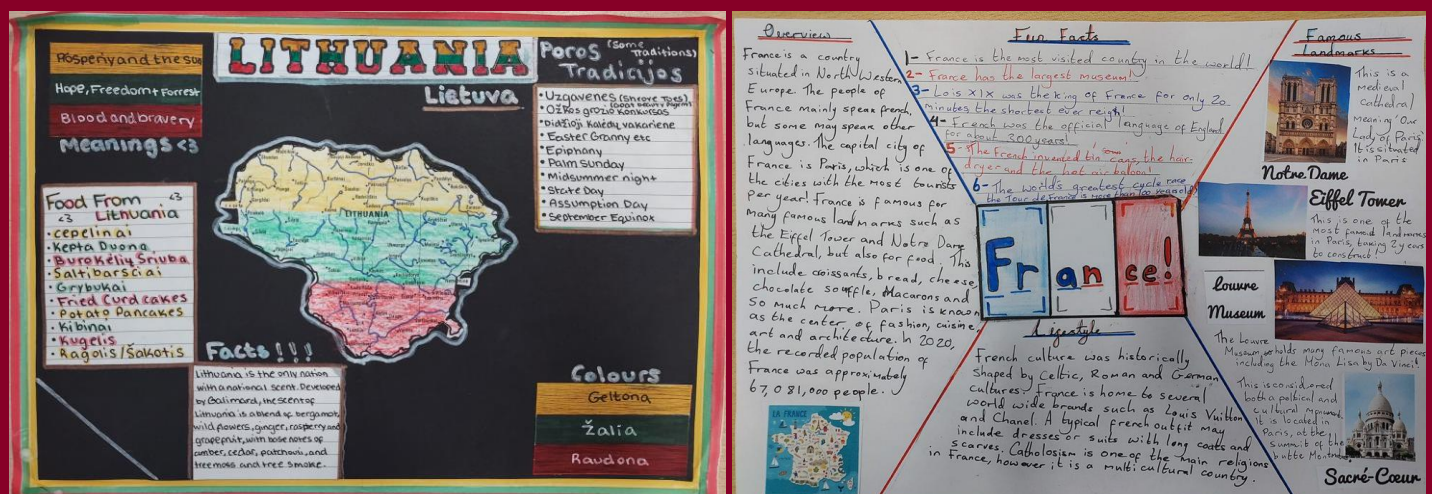 LITHUANIA
Lietuva
Prosperiy and the sun
Hope, Freedom + Forrest
Blood and bravery
Meanings <3
Poros (some
Traditions)
Tradicijos
• Uzgavenes (Shrove Tues)
• Ožkos grožio konkursas
• Didžioji Kalėdų vakarienė
• Easter Granny etc
• Epiphany
• Palm Sunday
• Midsummer night
• State Day
• Assumption Day
• September Equinox
Food From <3
<3 Lithuania
• cepelinai
• Kepta Duona
• Burokėlių Sriuba
• Šaltibarsciai
• Grybukai
• Fried Curd cakes
• Potato Pancakes
• Kibinai
• Kugelis
• Ragolis/Šakotis
LITHUANIA
Facts !!!
Lithuania is the only nation
with a national scent. Developed
by Galimard, the scent of
Lithuania is a blend of bergamot,
wild flowers, ginger, raspberry and
grapefruit, with base notes of
amber, cedar, patchouli, and
tree moss and tree smoke.
Colours
Geltona
Žalia
Raudona
Overview
France is a country
situated in North Western
Europe. The people of
France mainly speak french,
but some may speak other
languages. The capital city of
France is Paris, which is one of
the cities with the most tourists
per year! France is famous for
many famous landmarks such as
the Eiffel Tower and Notre Dame
Cathedral, but also for food. This
include croissants, bread, cheese,
chocolate souffle, Macarons and
so much more. Paris is known
as the center of fashion, cuisine,
art and architecture. In 2020,
the recorded population of
France was approximately
67,081,000 people.
LA FRANCE
Fun Facts
1- France is the most visited country in the world!
2- France has the largest museum!
3- Lois XIX was the king of France for only 20
minutes the shortest ever reign!
4- French was the official language of England
for about 300 years!
5- The French invented tin cans, the hair-
dryer and the hot air baloon!
6- The world's greatest cycle race
the Tour de France is more than 100 years old
France!
Lifestyle
French culture was historically
shaped by Celtic, Roman and German
cultures. France is home to several
world wide brands such as Louis Vuitton
and Chanel. A typical french outfit may
include dresses or suits with long coats and
scarves. Catholosism is one of the main religions
in France, however it is a multi cultural country.
Famous
Landmarks
This is a
medieval
cathedral
Meaning 'Our
Lady of Paris'.
It is situated
in Paris
Notre Dame
Eiffel Tower
This is one of the
most famous landmarks
in Paris, taking 2y ears
to construct!
Louvre
Museum
The Louvre
Museum holds many famous art pieces
including the Mona Lisa by Da Vinci!
This is considered
both a political and
cultural
It is located in
Paris, at the
summit of the
butte Montmartre
Sacré-Coeur